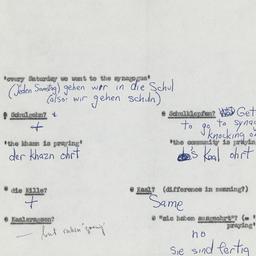 "every Saturday we went to the synagogue"
(Jeden Samstag) gehen wir in die Schul
(also: wir gehen schuln)
@ Schulgehn?
+
@ Schulklopfen? Get
to go to synag
knocking o
"the khazn is praying"
der khazn ohrt
"the community is prayin
s Kaal ohrt
@ die Kille?
+
@ Kaal? (difference in meaning?)
Same
@ Kaalsrausen?
— but
@ "sie haben ausgeohrt"? (=
praying"
no
Sie sind fertig